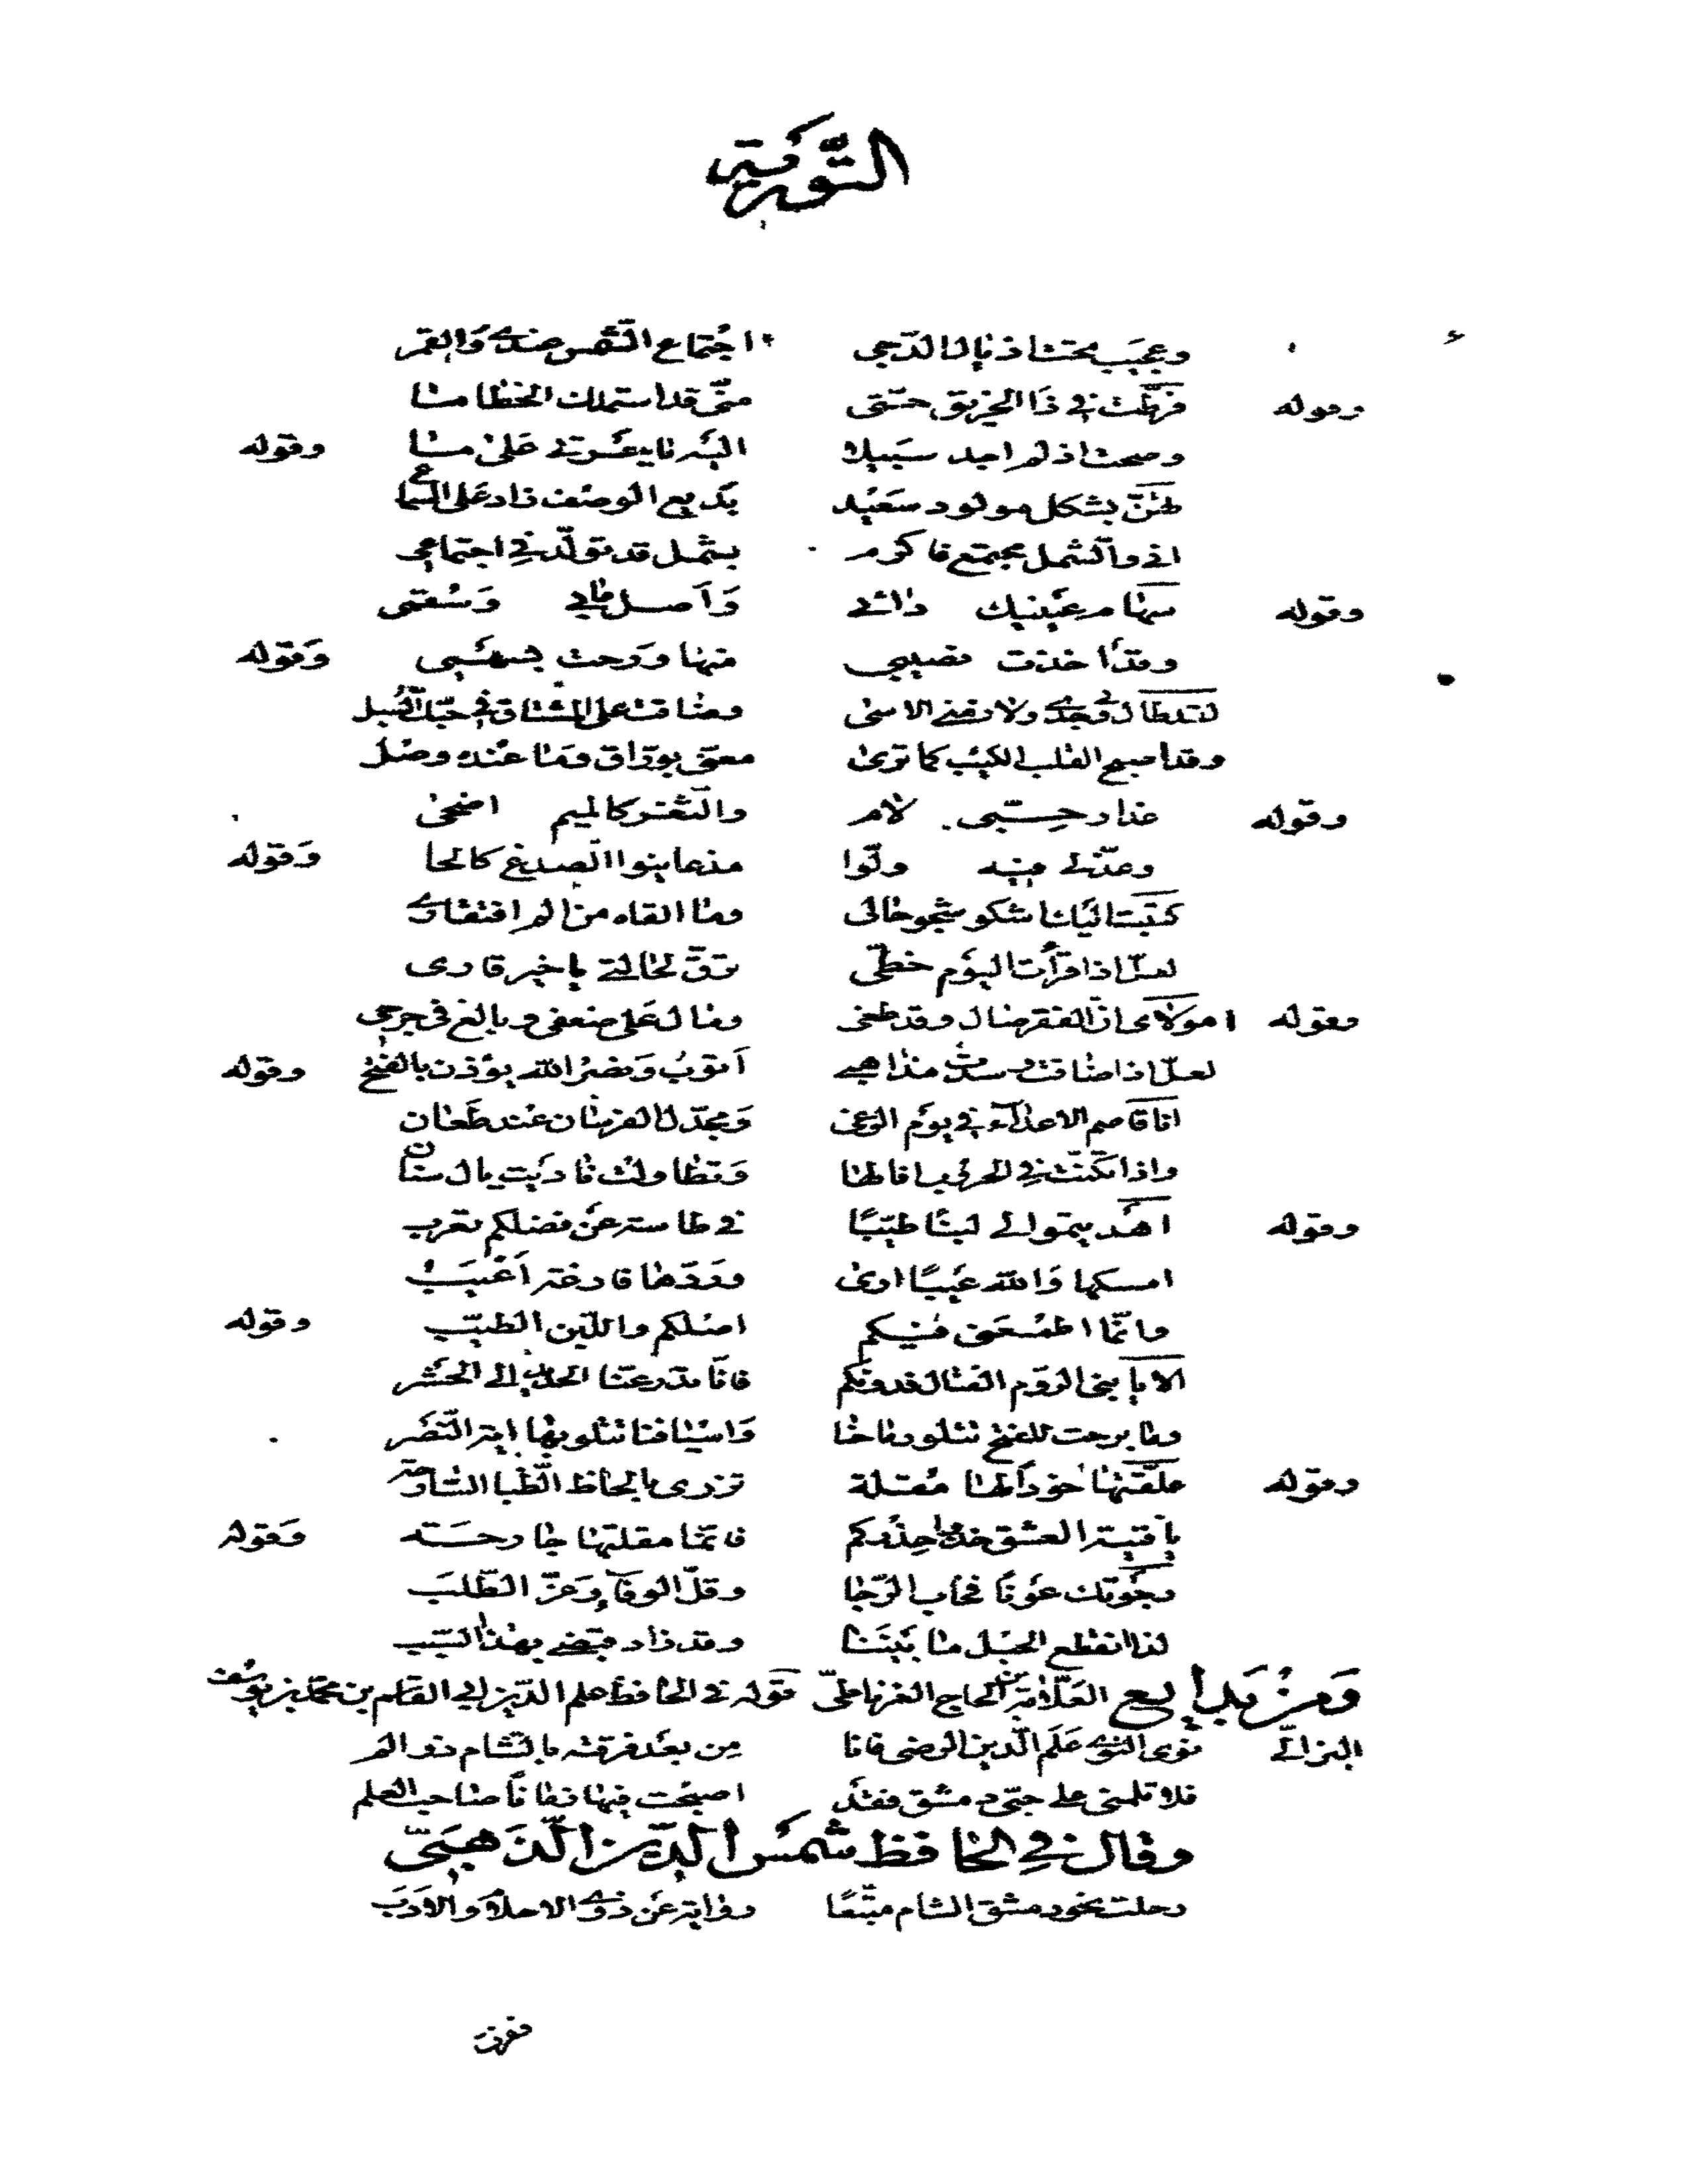 التورية
وعجيب محتنا ذيالا الدجى اجتماع الشمس عندي والقمر
وقوله فرطت في ذا الخير بق حتى متى قد استملك الخطا منا
وصحت اذ لم اجد سبيلا اليه نايعسرتي على منا وقوله
بشكل مولود سعيد بديع الوصف زاد على السماع
اني والشمل مجتمع فاكرم بشمل قد تولد في اجتماعي
وقوله سهام عينيك واصل وسقمي
وقد اخذت نصيبي منها ورحت بسهمي وقوله
لقد طال وجدي ولا الاسى وضاقت على المشتاق في حبك السبل
وقد اصبح القلب الكئيب كما ترى معنى بوراق وما عنده وصل
وقوله عذار حبي لام والثغر كالميم اضحى
وعذلي فيه ولوا مذ عاينوا الصدغ كالحا وقوله
كتبت اليك اشكو شجو حالي وما القاه من الم افتقاري
لعلك اذا قرأت اليوم خطي ترق لحالتي يا خير قاري
وقوله امولاي ان الفقر صال وقد طغى ومال على ضعفي وبالغ في جرحي
لعل اذا ضاقت وسدت مذاهبي اتوب ونصر الله يؤذن بالفتح وقوله
انا قاصم الاعداء في يوم الوغى ومجدل الفرسان عند طعان
واذا تمكنت في الحرب وتطاولت سنان
وقوله اهديتموا لي لبنا طيبا في طاسة عن فضلكم تعرب
امسكها والله عيبا ارى وردها فارغة اعيب
وانما اطمعنى فيكم اصلكم واللبن الطيب وقوله
الا يا بني الروم القتال فدونكم فانا تدرعنا الحديد الى الحشر
وما برحت للفتح تتلو رماحنا واسيافنا تتلو بها اية النصر
وقوله علقتها خودا لها مقلة تزرى بالحاظ الظبا السارحة
يا فتية العشق خذوا حذركم فانما مقلتها جارحة وقوله
رجوتك عونا فخاب الرجا وقل الوفاء وعز الطلب
لذا انقطع الحبل ما بيننا وقد زاد قبضي بهذا السبب
ومن بدايع العلامة ابن الحاج الغرناطي قوله في الحافظ علم الدين ابي القاسم بن محمد بن يوسف
البرزالي نوى النوى علم الدين الرضى فانا من بعد فرقته بالشام ذو الم
فلا تلمنى على حبي دمشق فقد اصبحت فيها زمانا صاحب العلم
وقال في الحافظ شمس الدين الذهبي
رحلت نحو دمشق الشام متبعا رواية عن ذوي الاحلام والادب